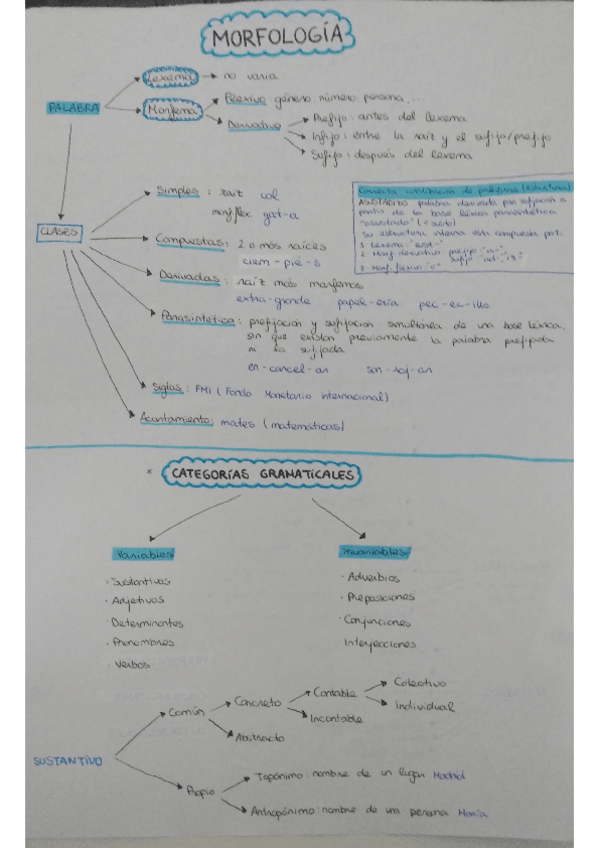 MORFOLOGÍA
Lexema → no varia
PALABRA
Morfema
Flexivo género, número, persona,...
Derivativo
Prefijo: antes del lexema
Infijo: entre la raíz y el sufijo/prefijo
Sufijo: después del lexema
CLASES
Simples: raíz col
morf flex. gat-a
Compuestas: 2 o más raíces
ciem-pié-s
Derivadas: raíz más morfemas
extra-grande papel-ería pec-ec-illo
Parasintética: prefijación y sufijación simultánea de una base léxica,
sin que existan previamente la palabra prefijada
ni la sufijada
en-carcel-ar
Siglas: FMI (Fondo Monetario Internacional)
Acortamiento: mates (matemáticas)
palabra derivada por sufijación a
partir de la base léxica parasintética
"asustado" (< susto)
Su estructura interna está compuesta por:
1 Lexema: "sust-"
2 Morf derivativo prefijo "a-"
3 Morf. flexivo "o"
CATEGORÍAS GRAMATICALES
Variables
· Sustantivos
· Adjetivos
· Determinantes
· Pronombres
· Verbos
Invariables
· Adverbios
· Preposiciones
· Conjunciones
Interjecciones
SUSTANTIVO
Común
Concreto
Contable
Colectivo
Individual
Incontable
Abstracto
Propio
Topónimo: nombre de un lugar Madrid
Antropónimo: nombre de una persona María